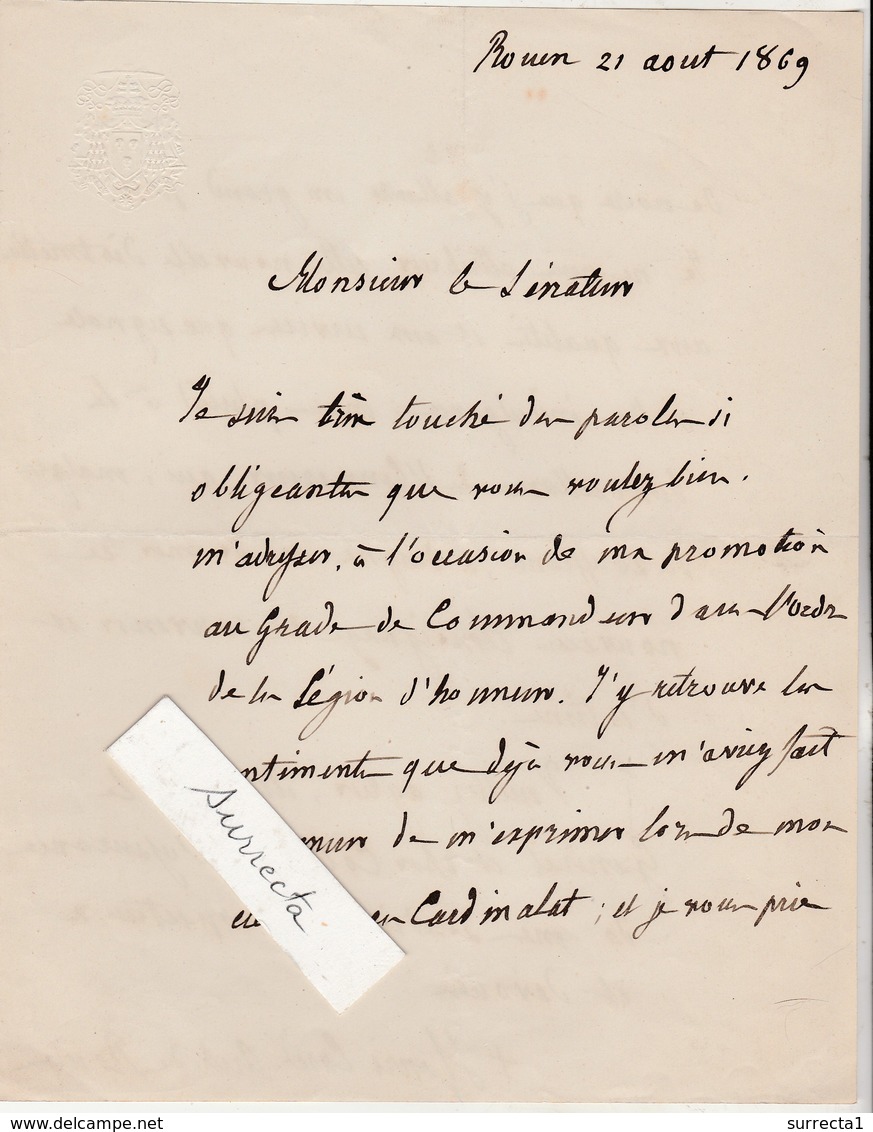 Rouen 21 aout 1869
Monsieur le Sénateur
Je suis très touché des paroles si
obligeantes que vous voulez bien
m'adresser, à l'occasion de ma promotion
au Grade de Commandeur dans l'ordre
de la Légion d'honneur. J'y retrouve les
sentiments que déjà vous m'aviez fait
nneur de m'exprimer lors de mon
au Cardinalat ; et je vous prie
surrecta
www.delcampe.net
surrecta1